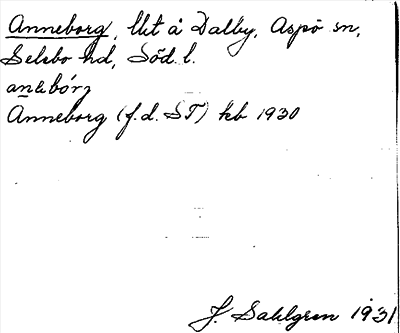 Anneborg, lht å Dalby, Aspö sn,
Selebo hd, Söd. l.
an&bórj
Anneborg (f.d. ST) kb 1930
J. Sahlgren 1931